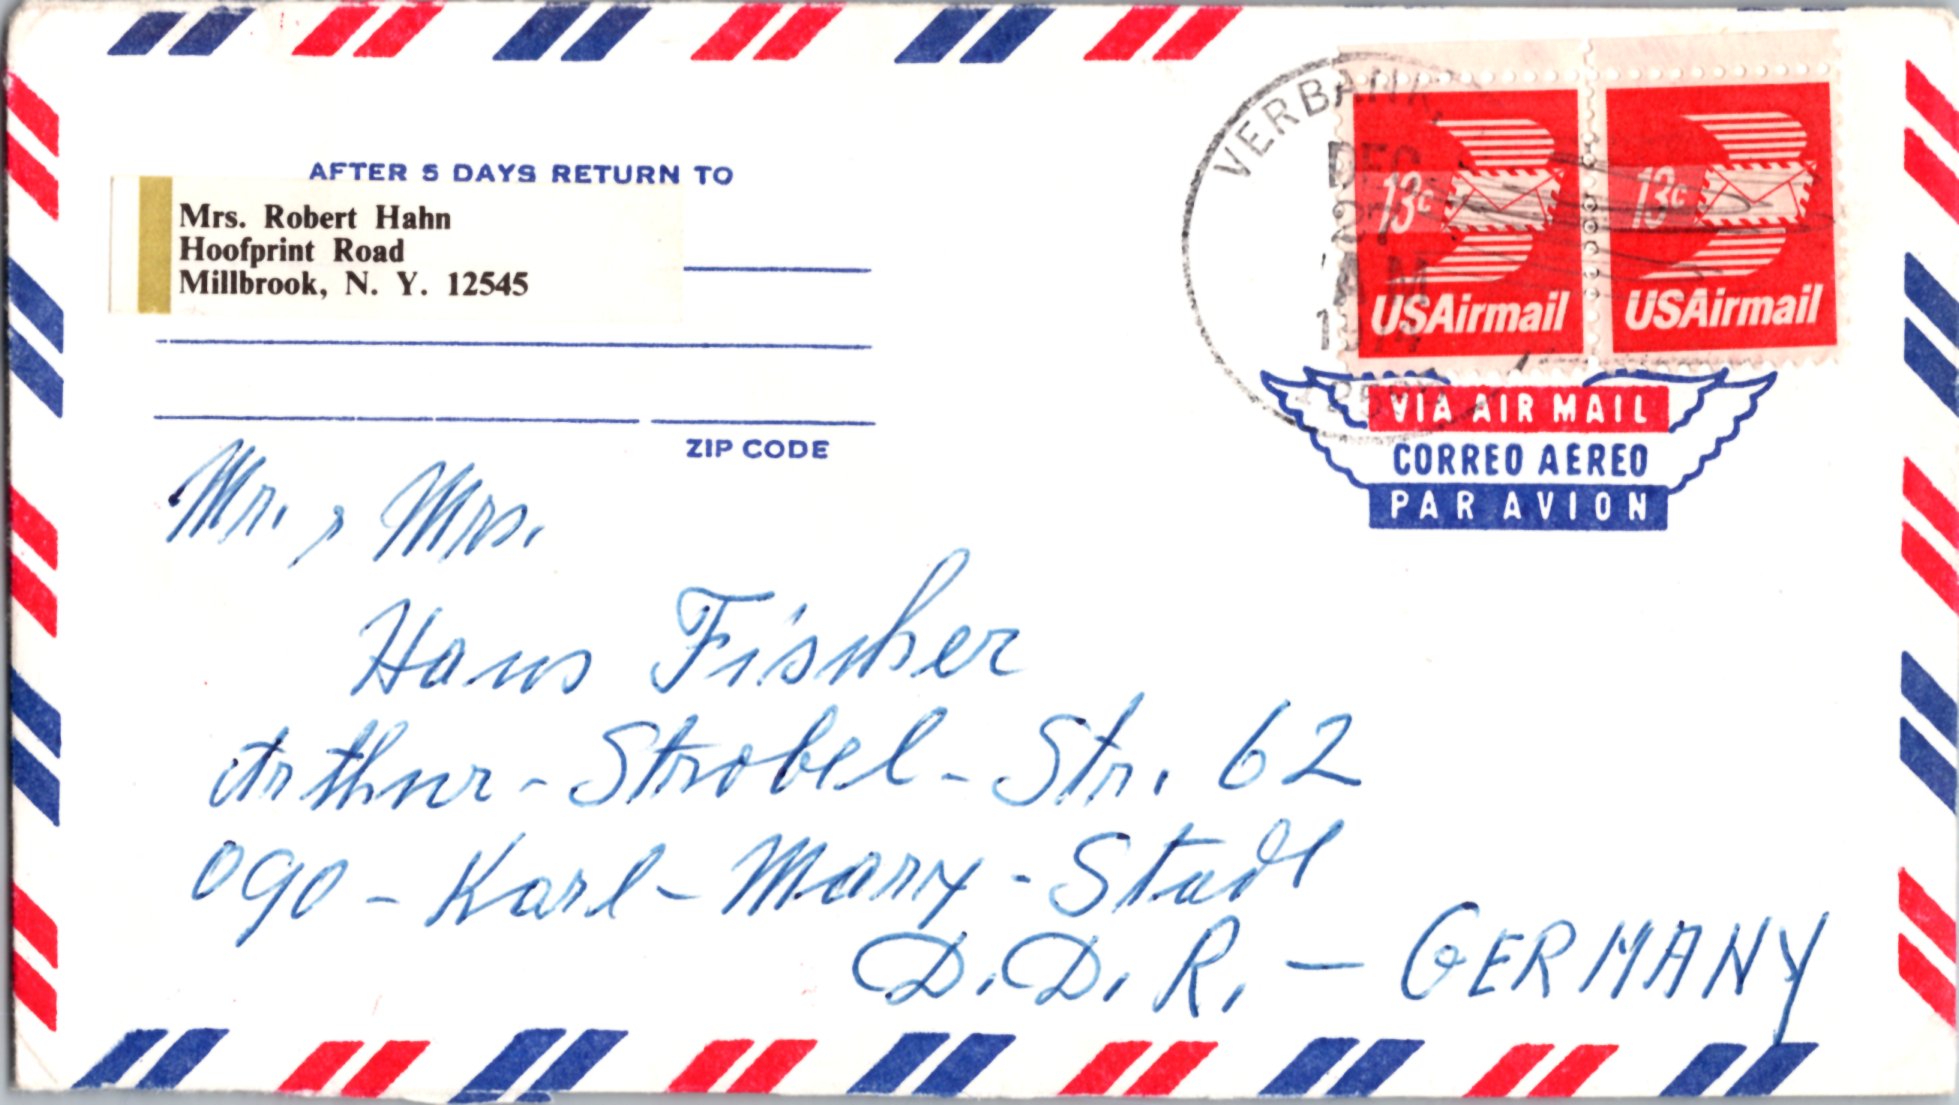 AFTER 5 DAYS RETURN TO
Mrs. Robert Hahn
Hoofprint Road
Millbrook, N. Y. 12545
ZIP CODE
VERBANK,
DEC
27
AM
1974
13c
USAirmail
13c
USAirmail
VIA AIR MAIL
CORREO AEREO
PAR AVION
Mr. & Mrs.
Hans Fischer
Arthur-Strobel-Str. 62
090-Karl-Marx-Stadt
D.D.R. — GERMANY